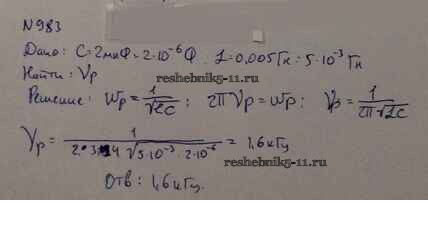 N983
Дано: C=2мкФ=2·10⁻⁶Ф. L=0,005Гн=5·10⁻³Гн
Найти: νр
reshebnik5-11.ru
Решение: ωр=1/√LC; 2πνр=ωр; νр=1/2π√LC
νр=1/2·3,14√5·10⁻³·2·10⁻⁶=1,6кГц
reshebnik5-11.ru
Отв: 1,6кГц.